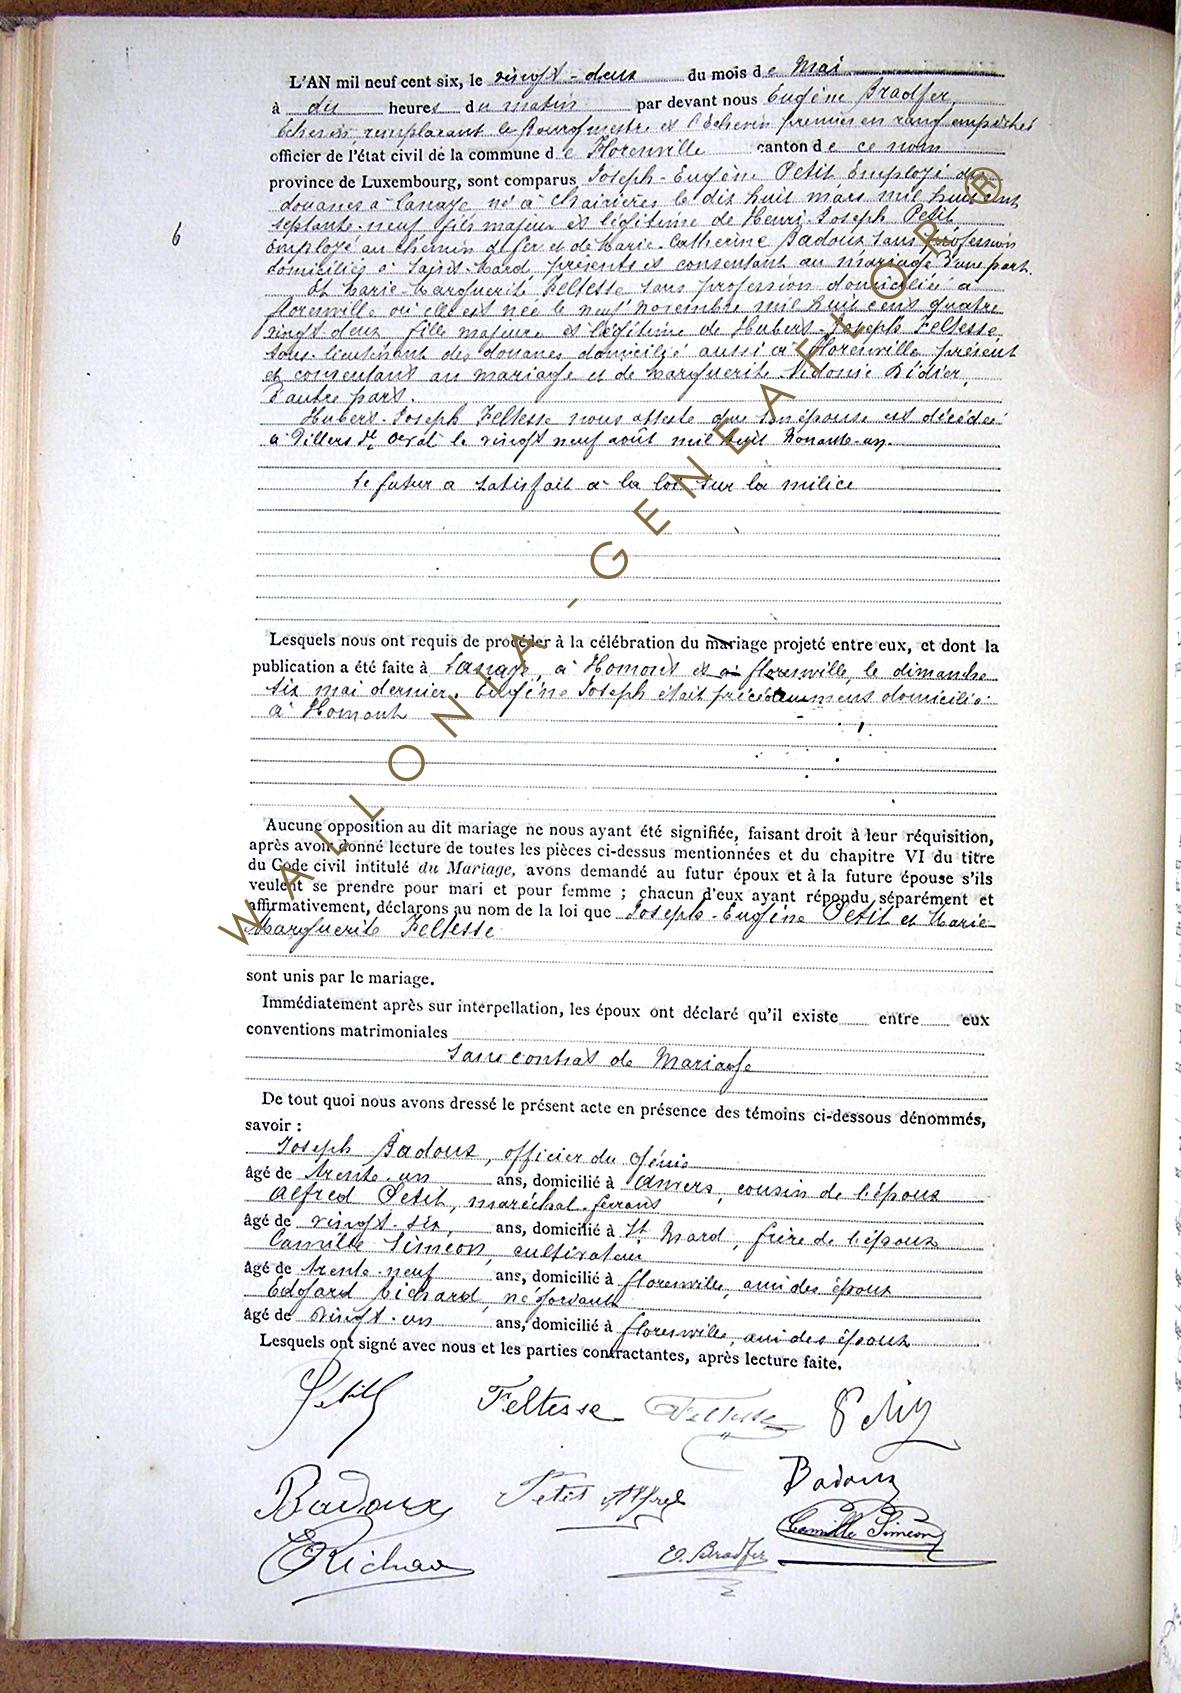 L'AN mil neuf cent six, le vingt-deux du mois de Mai
à dix heures du matin par devant nous Eugène Bradfer,
Echevin remplaçant le Bourgmestre et l'échevin premier en rang empêchés
officier de l'état civil de la commune de Florenville canton de ce nom
province de Luxembourg, sont comparus Joseph-Eugène Petit Employé des
douanes à Lanaye né à Chairières le dix huit mars mil huit cent
septante-neuf fils majeur et légitime de Henri-Joseph Petit
6
Employé au chemin de fer et de Marie-Catherine Badoux sans profession
domiciliés à Saint-Mard, présents et consentant au mariage d'une part.
Et Marie-Marguerite Feltesse sans profession domiciliée à
Florenville où elle est née le neuf novembre mil huit cent quatre
vingt deux fille majeure et légitime de Hubert-Joseph Feltesse
sous-lieutenant des douanes domicilié aussi à Florenville présent
et consentant au mariage et de Marguerite Sidonie Didier,
d'autre part.
Hubert-Joseph Feltesse nous atteste que son épouse est décédée
à Villers dt Orval le vingt neuf août mil huit nonante-un.
Le futur a satisfait à la loi sur la milice
Lesquels nous ont requis de procéder à la célébration du mariage projeté entre eux, et dont la
publication a été faite à Lanaye, à Homont et à Florenville, le dimanche
six mai dernier. Eugène Joseph était précédemment domicilié
à Homont
Aucune opposition au dit mariage ne nous ayant été signifiée, faisant droit à leur réquisition,
après avoir donné lecture de toutes les pièces ci-dessus mentionnées et du chapitre VI du titre
du Code civil intitulé du Mariage, avons demandé au futur époux et à la future épouse s'ils
veulent se prendre pour mari et pour femme ; chacun d'eux ayant répondu séparément et
affirmativement, déclarons au nom de la loi que Joseph-Eugène Petit et Marie-
Marguerite Feltesse
sont unis par le mariage.
Immédiatement après sur interpellation, les époux ont déclaré qu'il existe entre eux
conventions matrimoniales
sans contrat de Mariage
De tout quoi nous avons dressé le présent acte en présence des témoins ci-dessous dénommés,
savoir :
Joseph Badoux, officier du génie
âgé de trente-un ans, domicilié à Anvers, cousin de l'époux
Alfred Petit, maréchal-ferrant
âgé de vingt-six, ans, domicilié à St Mard, frère de l'époux
Camille Simeon, cultivateur
âgé de trente-neuf ans, domicilié à Florenville, ami des époux
Edgard Richard, négociant
âgé de vingt-un ans, domicilié à Florenville, ami des époux
Lesquels ont signé avec nous et les parties contractantes, après lecture faite.
Petit Feltesse Feltesse Petit
Badoux Petit Alfred Badoux
Camille Simeon
E Richard E. Bradfer
WALLONIA-GENEAFLOR ®